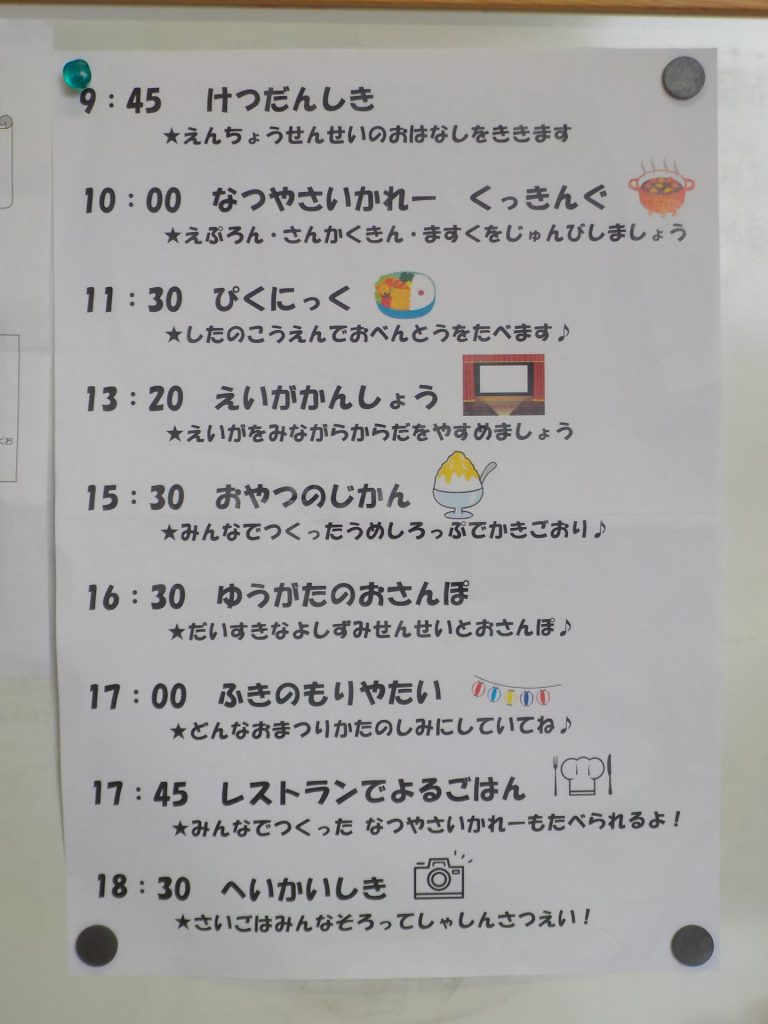 9：45　けつだんしき
★えんちょうせんせいのおはなしをききます
10：00　なつやさいかれー　くっきんぐ
★えぷろん・さんかくきん・ますくをじゅんびしましょう
11：30　ぴくにっく
★したのこうえんでおべんとうをたべます♪
13：20　えいがかんしょう
★えいがをみながらからだをやすめましょう
15：30　おやつのじかん
★みんなでつくったうめしろっぷでかきごおり♪
16：30　ゆうがたのおさんぽ
★だいすきなよしずみせんせいとおさんぽ♪
17：00　ふきのもりやたい
★どんなおまつりかたのしみにしていてね♪
17：45　レストランでよるごはん
★みんなでつくった なつやさいかれーもたべられるよ！
18：30　へいかいしき
★さいごはみんなそろってしゃしんさつえい！